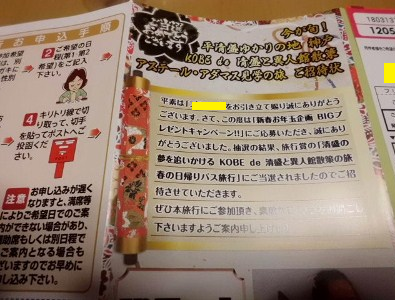 お申込み手順
ご希望の日
程(第1 第2
希望)をご記入
下さい。
キリトリ線で切
り取って、切手
を貼ってポストへご
投函ください。
注意
お申し込みが遅く
なりますと、満席等
によりご希望日でのご案
内ができない場合があり、
補助席もしくは別日程で
ご案内となる場合も
ございますのでお早めに
お申し込み下さい。
ご当選
おめでとう
ございます
今が旬!
平清盛ゆかりの地 神戸
KOBE de 清盛と異人館散策
アステール・アダマス見学の旅 ご招待状
平素は
をお引き立て賜り誠にありがとう
ございます。さて、この度「新春お年玉企画 BIGプ
レゼントキャンペーン!!」にご応募いただき、誠にあり
がとうございました。抽選の結果、旅行賞の「清盛の
夢を追いかける KOBE de 清盛と異人館散策の旅
春の日帰りバス旅行」にご当選されましたのでご招
待させていただきます。
ぜひ本旅行にご参加頂き、
下さいますようご案内申し上げ
T8031
1205